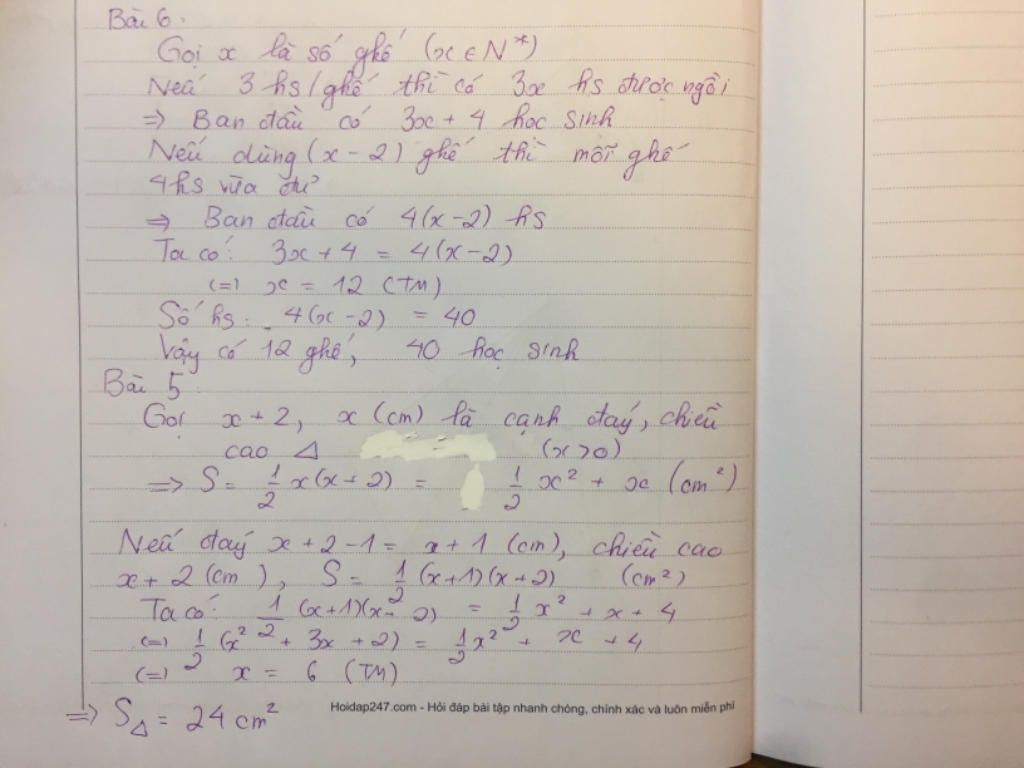 Bài 6.
Gọi x là số ghế (x ∈ N*)
Nếu 3 hs/ghế thì có 3x hs được ngồi
=> Ban đầu có 3x + 4 học sinh
Nếu dùng (x - 2) ghế thì mỗi ghế
4hs vừa đủ
=> Ban đầu có 4(x-2) hs
Ta có: 3x + 4 = 4(x-2)
(=) x = 12 (TM)
Số hs: 4(x-2) = 40
Vậy có 12 ghế, 40 học sinh
Bài 5
Gọi x + 2, x (cm) là cạnh đáy, chiều
cao Δ (x>0)
=> S = 1/2 x(x+2) = 1/2 x² + x (cm²)
Nếu đáy x + 2 - 1 = x + 1 (cm), chiều cao
x + 2 (cm), S = 1/2 (x+1)(x+2) (cm²)
Ta có: 1/2 (x+1)(x+2) = 1/2 x² + x + 4
(=) 1/2 (x² + 3x + 2) = 1/2 x² + x + 4
(=) x = 6 (TM)
=> SΔ = 24 cm²
Hoidap247.com - Hỏi đáp bài tập nhanh chóng, chính xác và luôn miễn phí